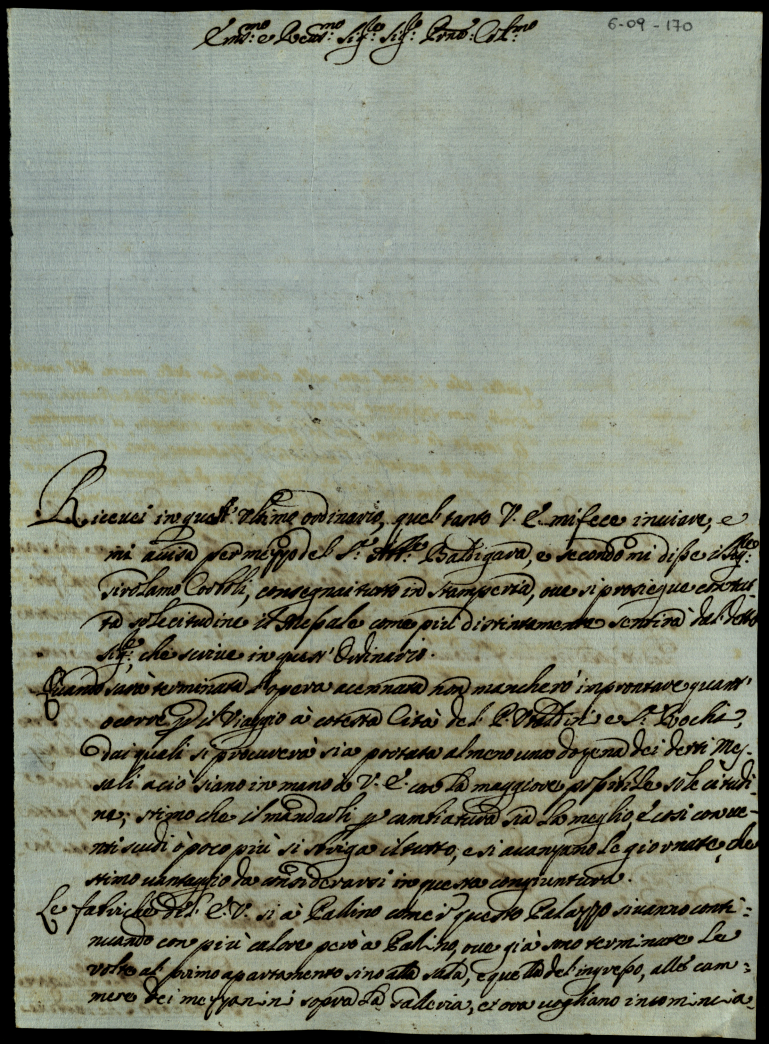 6-09-170
Em.mo e Reu.mo Sig.re Sig.re Pron.e Col.mo
Riceuei in quest' vltimo ordinario, quel tanto V. E. mi fece inuiare, e
mi auisa per mezzo del S.r Balligara, e secondo mi disse il Sig.re
Girolamo Costoli, consegnai tutto in stamperia, oue si prosiegue con tut=
ta solecitudine il Messale come più distintamente sentirà dal detto
Sig.re che scriue in quest' Ordinario.
Quando sarà terminata l'opera acennata non mancherò improntare quant'
ocorre p il Viaggio à cotesta Città del P. e S.r Rocha,
dai quali si procurerà sia portata almeno una dozena dei detti Mes=
sali acciò siano in mano de V. E. con la maggiore possibile solecitudi=
ne; stimo che il mandarli p cambiatura sia la meglio, e così con ue=
nti scudi ò poco più si striga il tutto, e si auanzano le giornate, che
stimo uantaggio da considerarsi in questa congiuntura.
Le fabriche dell' E. V. si à Palino come in questo Palazzo si uanno conti=
nuando con più calore però à Palino, oue già sono terminate le
volte al primo apartamento sino alla sala, e quella del ingresso, alle cam=
mere dei mezzanini sopra la Galleria, et ora uogliano incomincia=